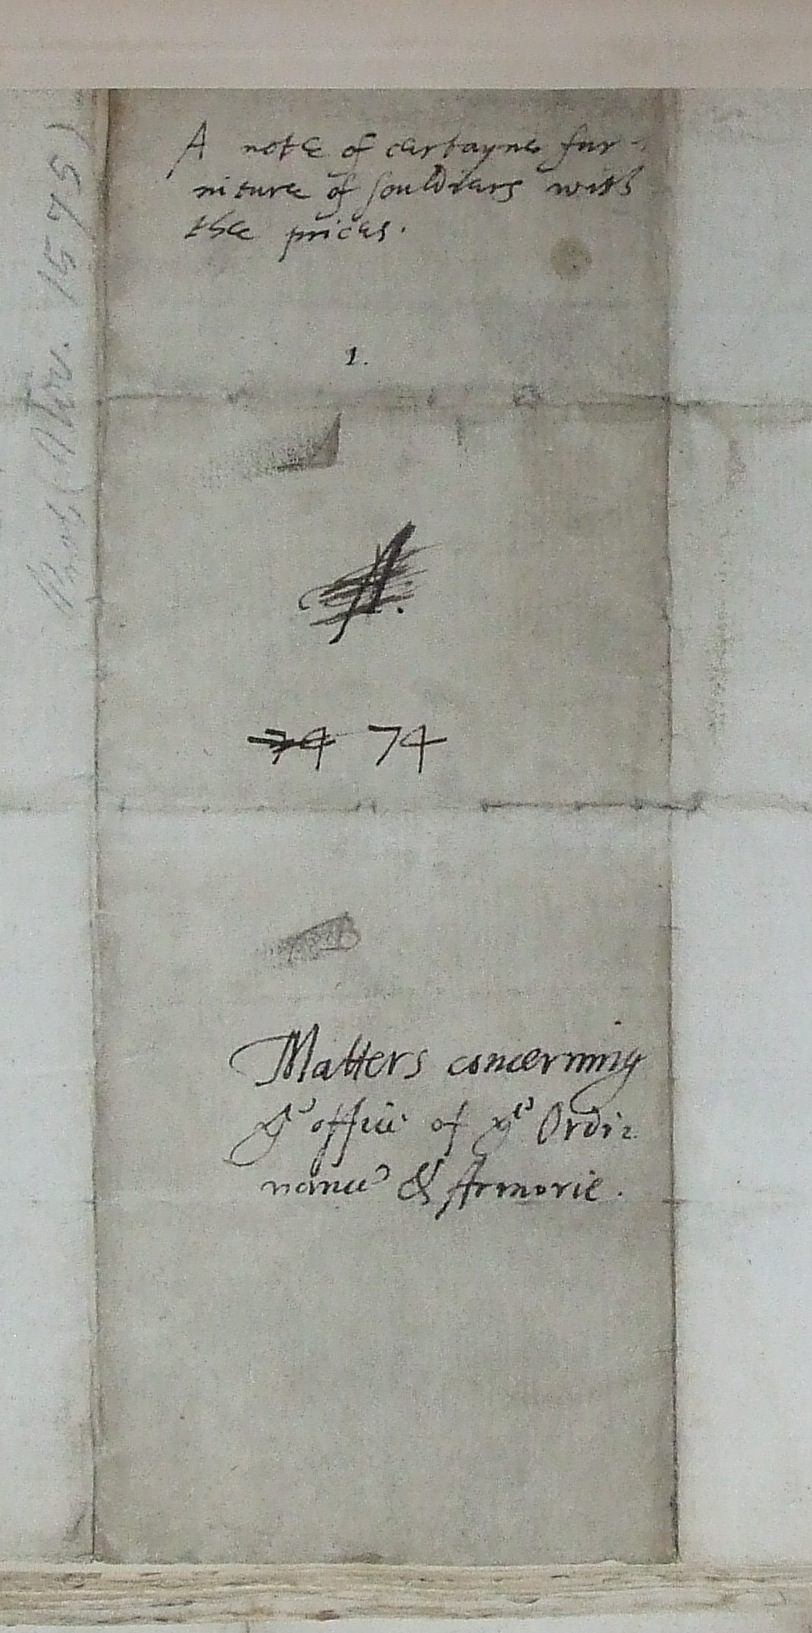 A note of certayne fur-
niture of souldiers with
the prices.
1.
74 74
Matters concerning
yᵉ office of yᵉ Ordi-
nance & Armorie.
1575)